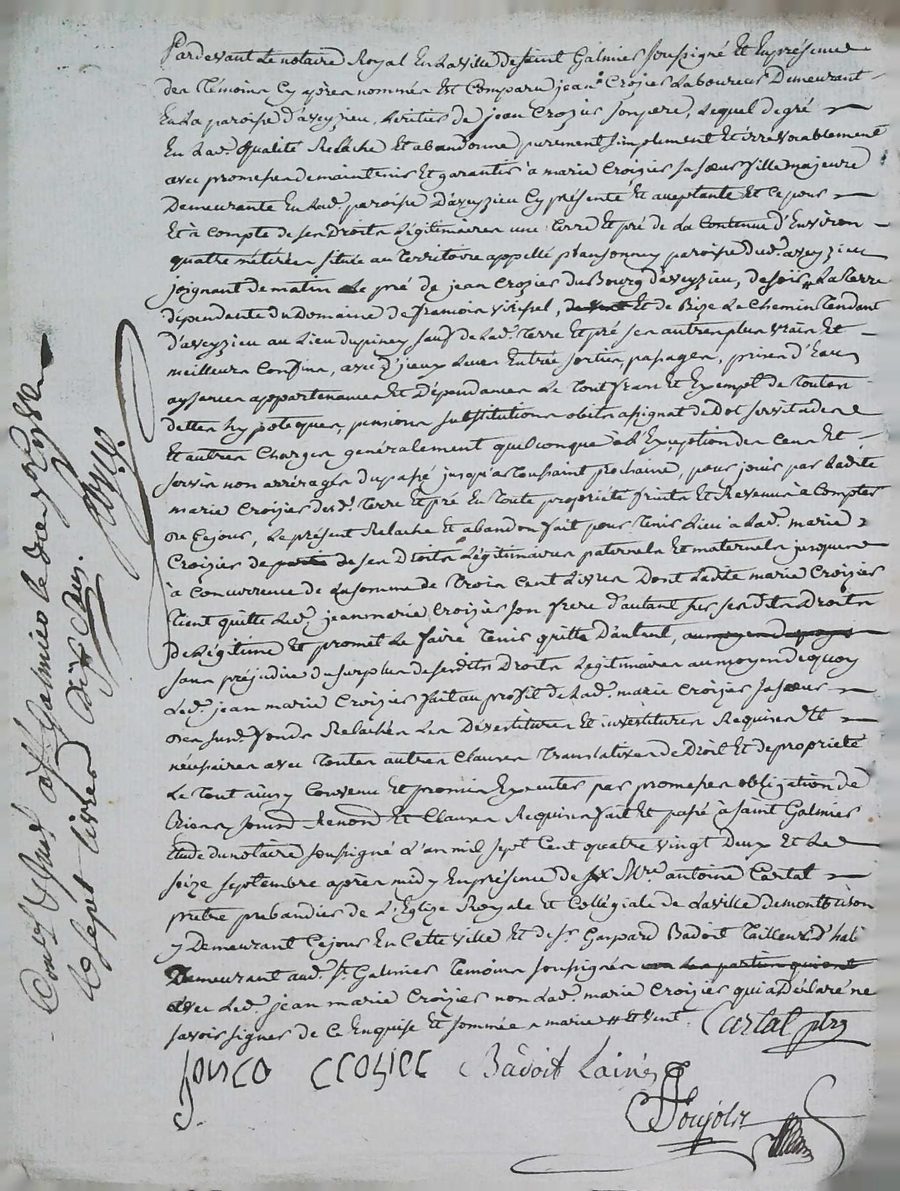 Pardevant Le notaire Royal En La ville de saint Galmier soussigné Et En presence
des Témoins Cy après nommés Est Comparu jean Croizier Laboureur Demeurant
En La paroisse d'aveyzieu, heritier de jean Crozier son pere, Lequel de gré
En Lad. qualité Relache Et abandonne purement simplement Et irrevocablement
avec promesse de maintenir Et garantir à marie Croizier sa sœur fille majeure
Demeurante En Lad. paroisse D'aveyzieu Cy présente Et aceptante Et Ce pour
Et à Compte de ses Droits Légitimaires une Terre Et pré de La Contenue d'Environ
quatre méterées située au Territoire appellé paroisse dud. aveyzieu
joignant de matin Le pré de jean Crozier du Bourg d'aveyzieu, de soir La Terre
dépendante du Domaine de francois Et de Bize Le Chemin Tendant
d'aveyzieu au Lieu dupiney sauf de Lad. Terre Et pré ses autres plus vrais Et
meilleurs Confins, avec Leurs Entrée sorties, passages, prises d'Eau
aysances appartenances Et Dépendances Le Tout franc Et Exempt de Toutes
dettes hypoteques, pensions substitutions obits assignat de Dot servitudes
Et autres Charges généralement quelconque à L'Exception des Cens Et
servis non arrérages du passé jusqu'a Toussaint prochaine, pour jouir par Ladite
marie Croizier desd. Terre Et pré En Toute propriété fruits Et Revenus à Compter
de Cejour, Le présent Relache Et abandon fait pour Tenir Lieu a Lad. marie
Croizier de ses Droits Légitimaires paternels Et maternels jusques
à Concurrence de La somme de Trois Cent Livres Dont Ladite marie Croizier
Tient quitte Led. jean marie Croizier son frere d'autant sur sesdits Droits
de Légitime Et promet Le faire Tenir quitte D'autant,
sans préjudice du surplus de sesdits Droits Légitimaires au moyen de quoy
Led. jean marie Croizier fait au profit de Lad. marie Croizier sa sœur
des susd. fonds Relachés Les Devestitures Et investitures Requises Et
nécessaires avec Toutes autres Clauses Translatives de Droit Et de propriété
Le Tout ainsy Convenu Et promis Executer par promesses obligation de
Biens Et Clauses Requises fait Et passé à saint Galmier
Etude du notaire soussigné L'an mil sept Cent quatre vingt Deux Et Le
seize septembre après midy En presence de Mre antoine Cartal
pretre prebandier de L'Eglise Royale Et Collégiale de La ville de montbrison
y Demeurant Cejour En Cette ville Et de Sr. Gaspard Badoit Tailleur d'habi
Demeurant aud. St. Galmier Témoins soussignés
avec Led. jean marie Croizier non Lad. marie Croizier qui a Déclaré ne
savoir signer de Ce Enquise Et sommée
Cartal ptre
Croziec Badoit Lainé
Controllé à St Galmier le
sept livres dix sols